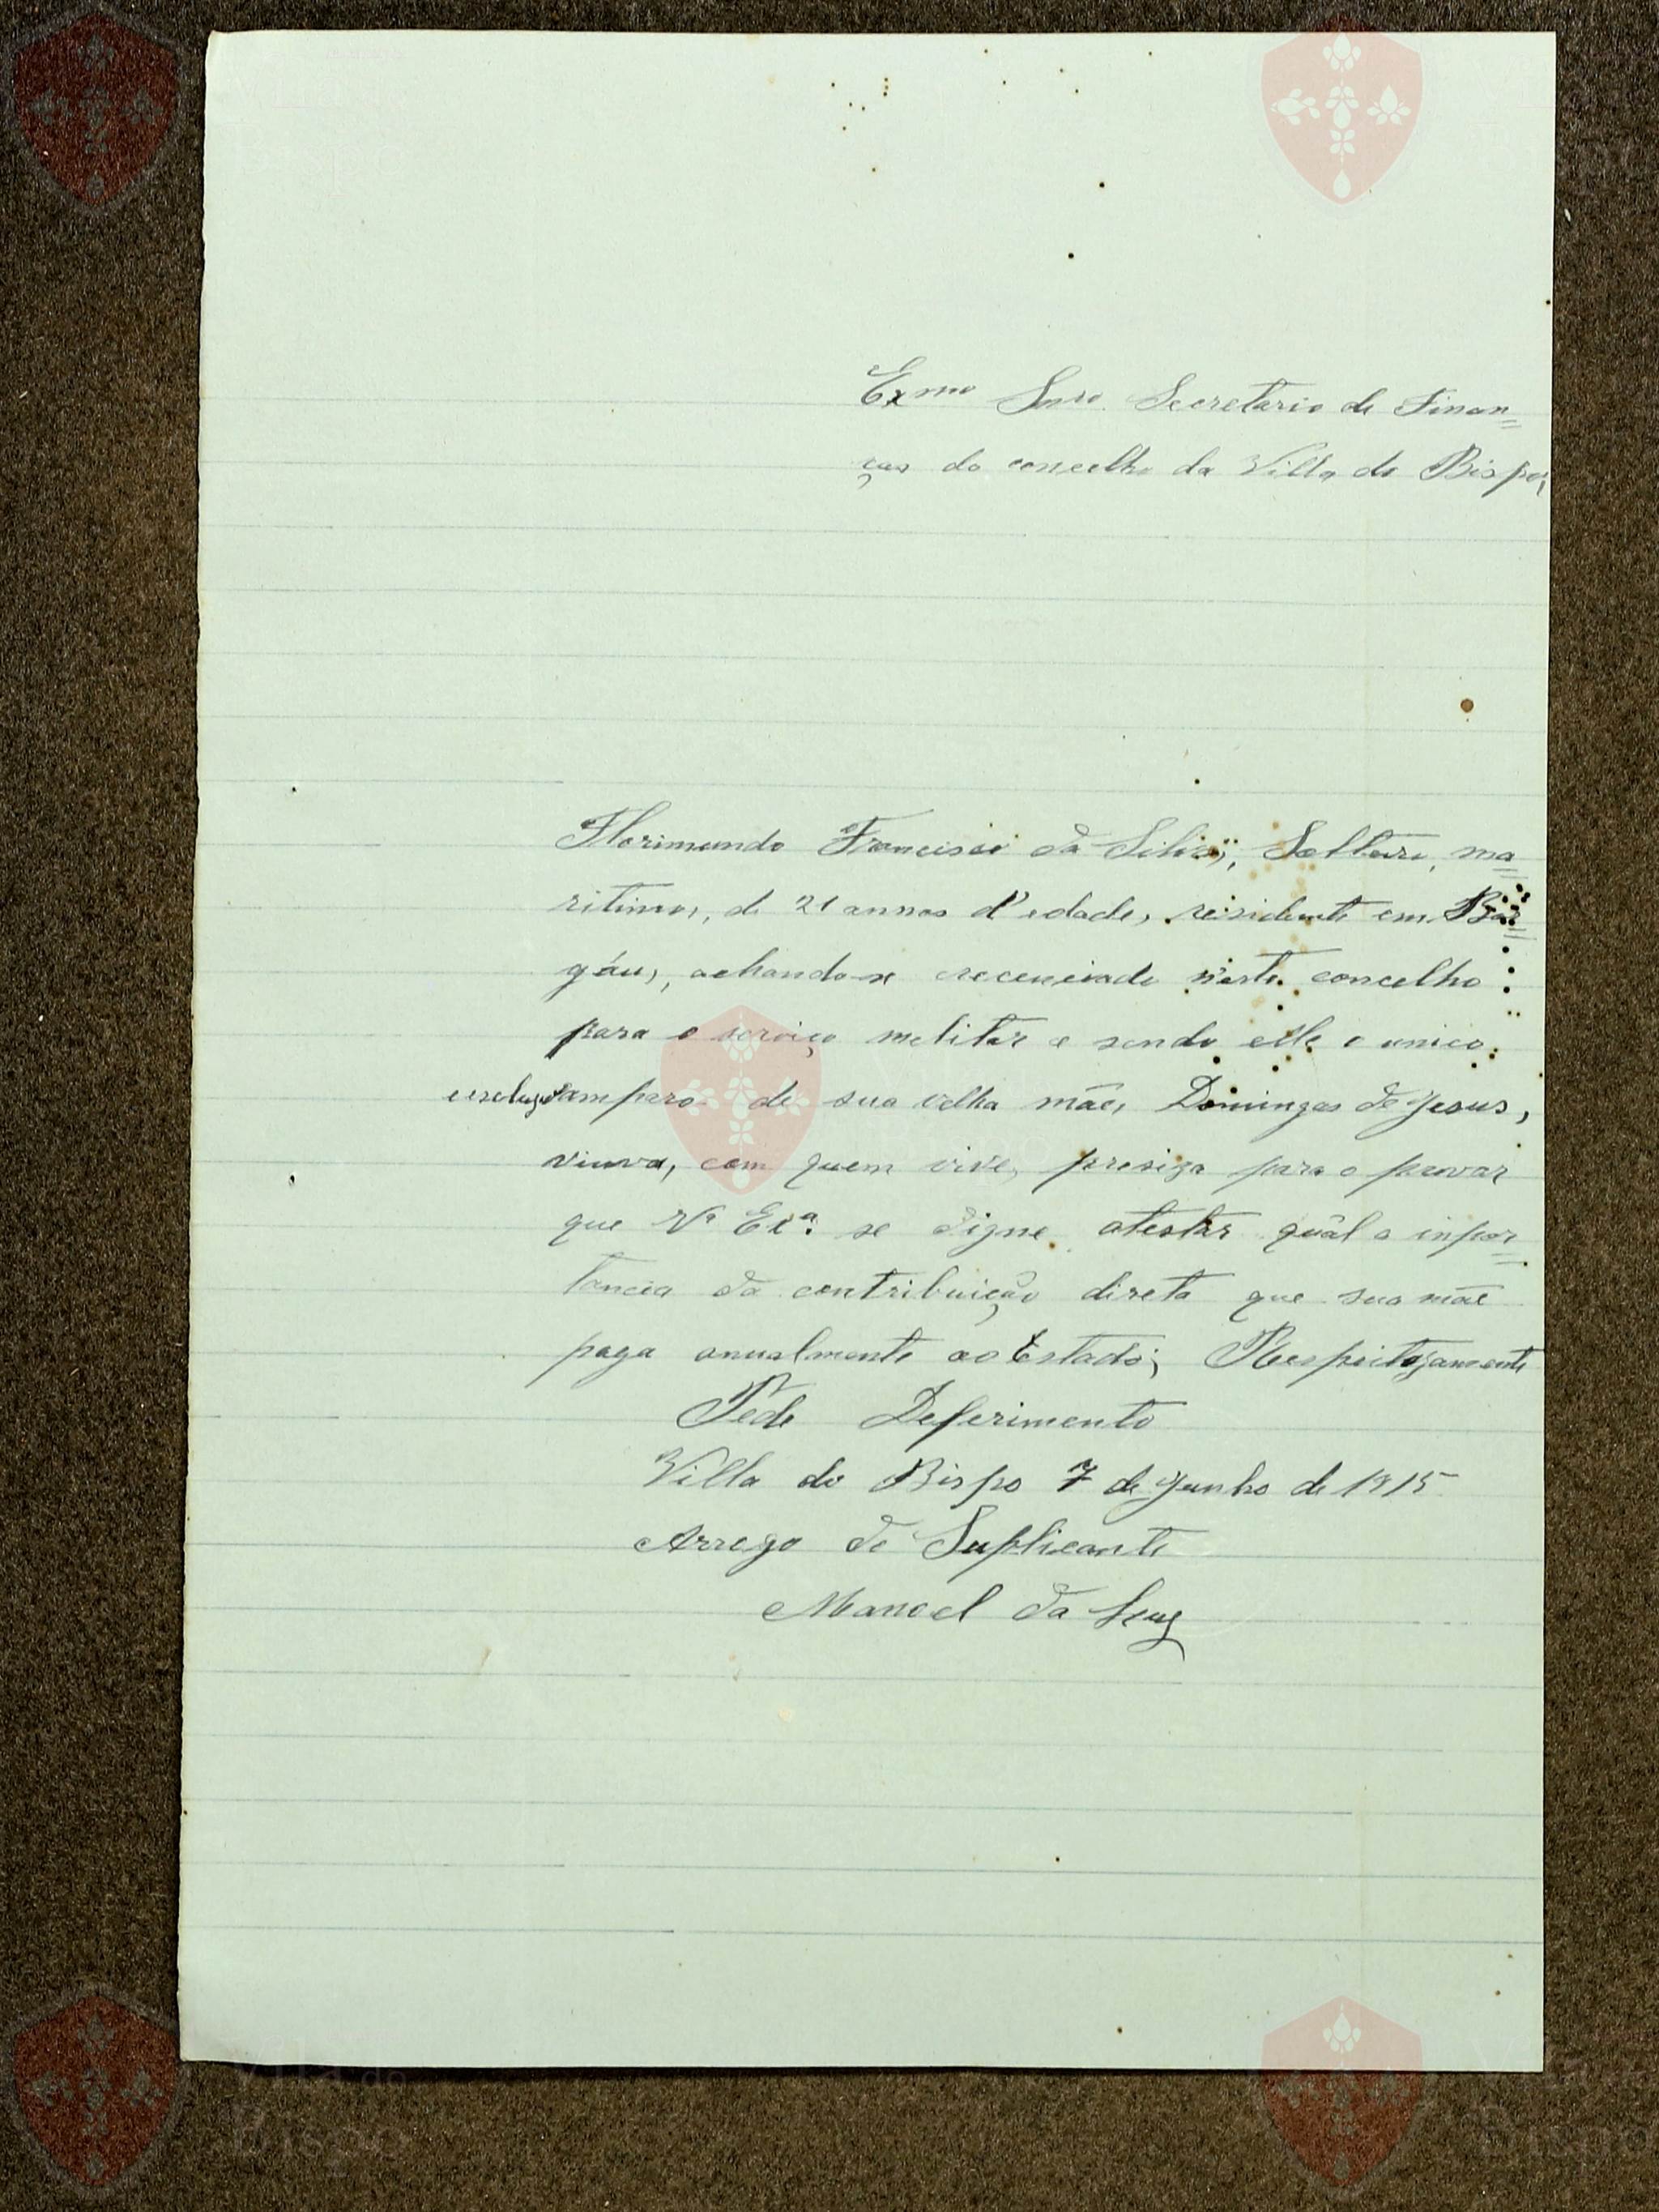 Exmo Snro. Secretario de Finan=
ças do concelho da Villa do Bispo;
Florimundo Francisco da Silva, Solteiro, ma=
ritimo, de 21 annos d'edade, residente em Bur=
gáu, achando-se recenciado n'este concelho
para o serviço melitar e sendo elle o unico
amparo de sua velha mãe, Domingas de Jesus,
viuva, com quem vive, presiza para o provar
que Vª Exª. se digne atestar quál a inpor=
tancia da contribuição direta que sua mãe
paga anualmente ao Estado; Respeitozamente
Pede Deferimento
Villa do Bispo 7 de Junho de 1915
Arrogo do Suplicante
Manoel da
Vila do
Bispo